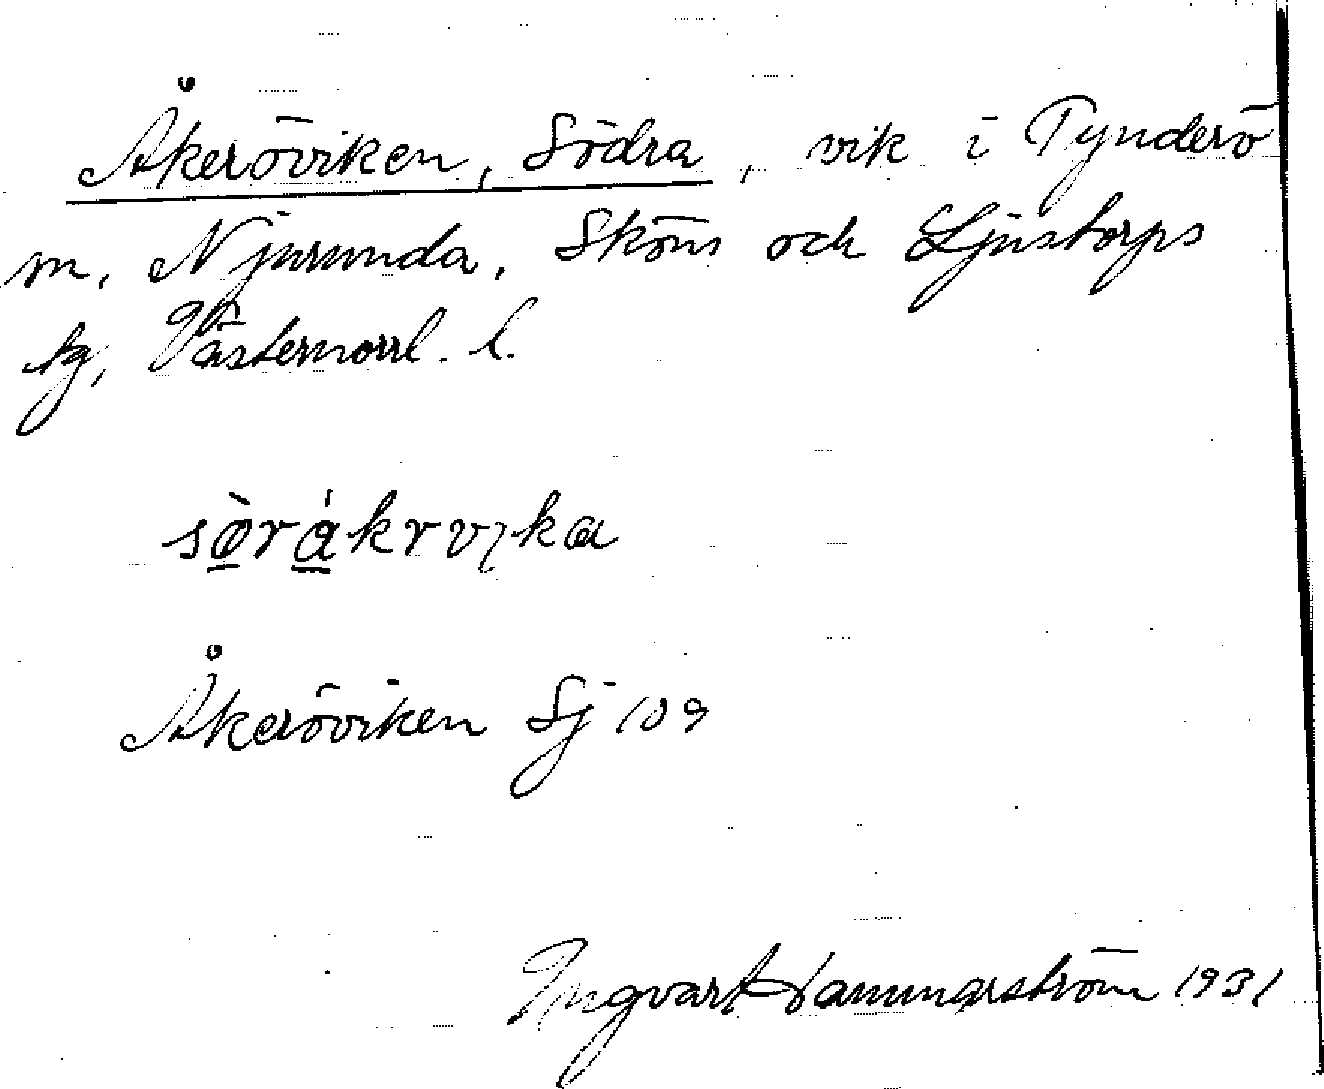 Åkeröviken, Södra, vik i Tynderö
sn, Njurunda, Sköns och Ljustorps
tg, Västernorrl. l.
sø̀rákrvika
Åkeröviken Sj 109
Ingvar Hammarström 1931